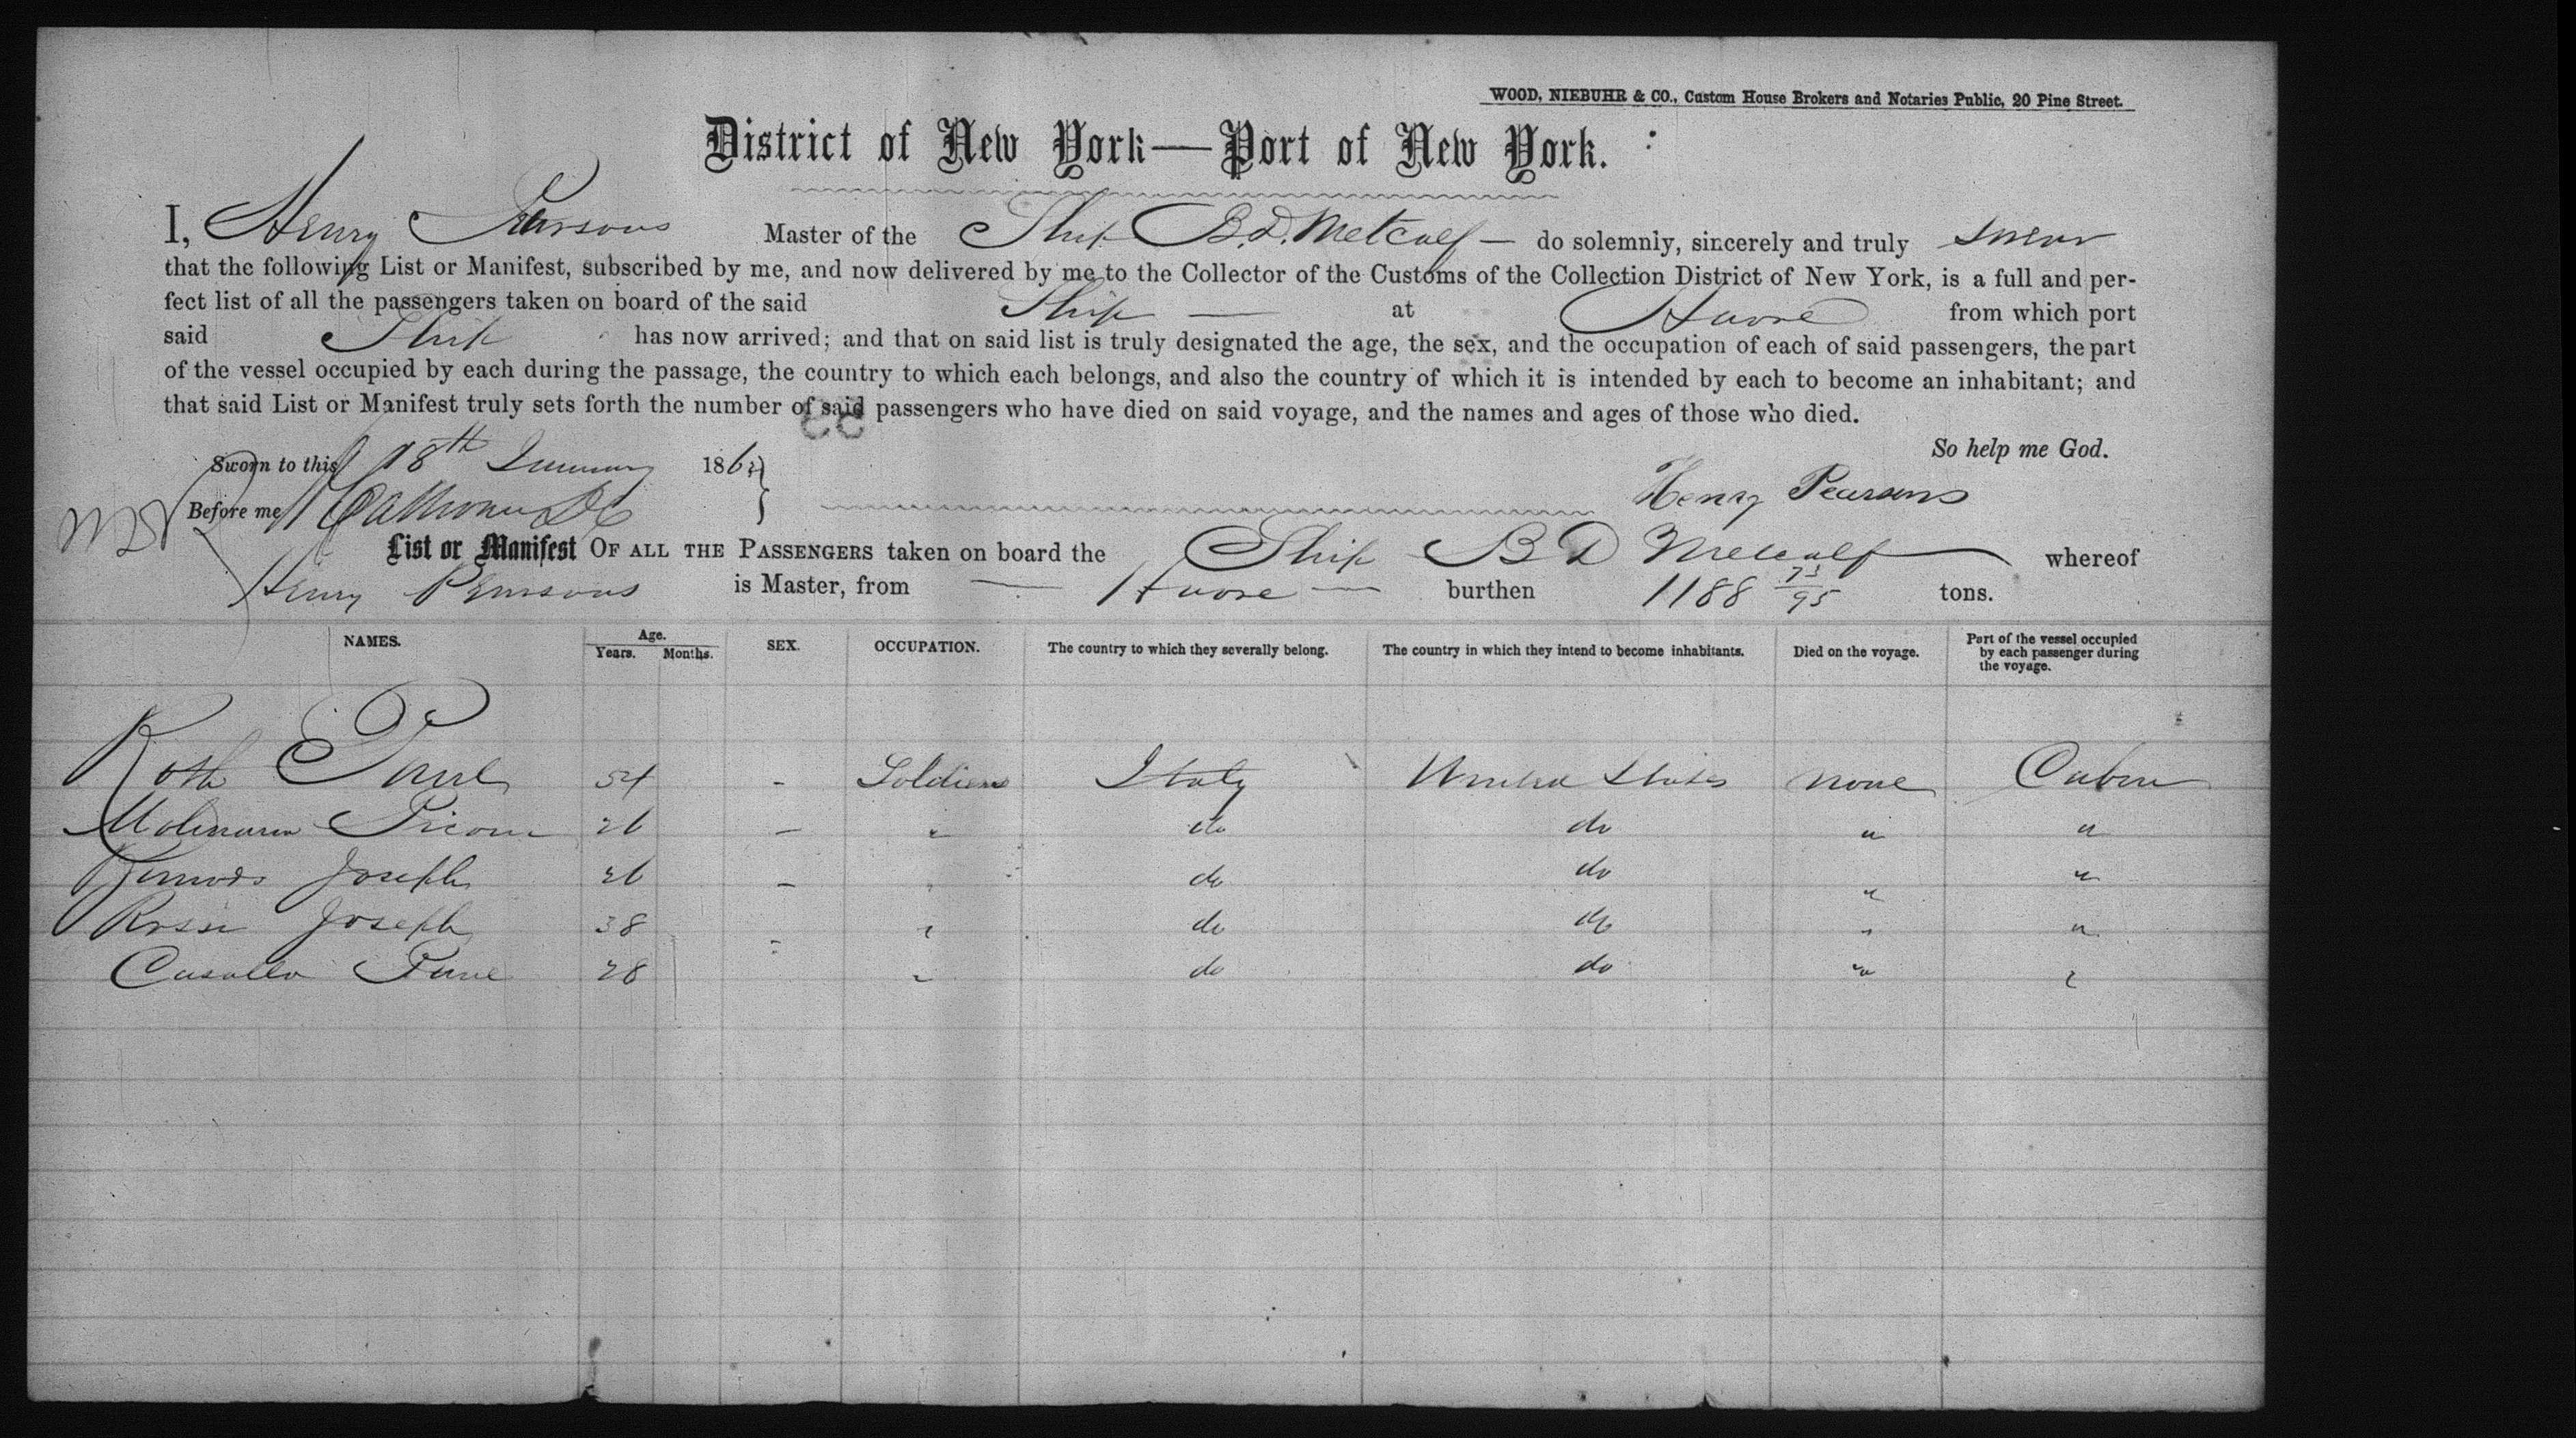 WOOD, NIEBUHR & CO., Custom House Brokers and Notaries Public, 20 Pine Street.
District of New York—Port of New York.
I, Henry Pearsons Master of the Ship B.D. Metcalf — do solemnly, sincerely and truly swear
that the following List or Manifest, subscribed by me, and now delivered by me to the Collector of the Customs of the Collection District of New York, is a full and per-
fect list of all the passengers taken on board of the said Ship — at Havre from which port
said Ship has now arrived; and that on said list is truly designated the age, the sex, and the occupation of each of said passengers, the part
of the vessel occupied by each during the passage, the country to which each belongs, and also the country of which it is intended by each to become an inhabitant; and
that said List or Manifest truly sets forth the number of said passengers who have died on said voyage, and the names and ages of those who died.
So help me God.
Sworn to this 18th January 186
Before me
Henry Pearsons
List or Manifest OF ALL THE PASSENGERS taken on board the Ship B D Metcalf whereof
Henry Pearsons is Master, from — Havre — burthen 1188 73/95 tons.
NAMES. Age. Years. Months. SEX. OCCUPATION. The country to which they severally belong. The country in which they intend to become inhabitants. Died on the voyage. Part of the vessel occupied by each passenger during the voyage.
Roth Paul 54 - Soldiers Italy United States none Cabin
26 - " do do " "
Joseph 26 - " do do " "
Rossi Joseph 38 - " do do " "
28 " do do " "